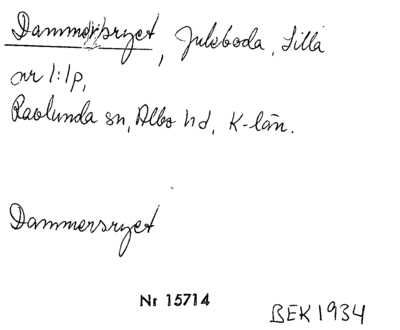 Dammersryet, Juleboda, Lilla
ar 1:1p,
Ravlunda sn, Albo hd, K-län.
Dammersryet
Nr 15714
BEK 1934